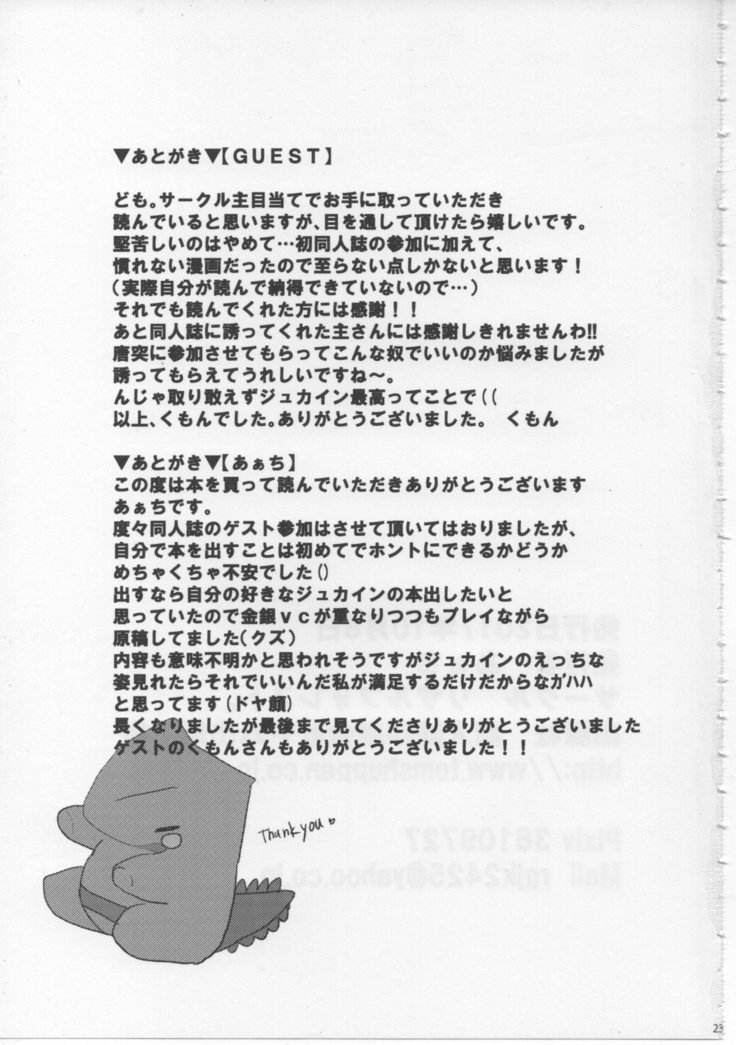 ▼あとがき▼【GUEST】
ども。サークル主目当てでお手に取っていただき
読んでいると思いますが、目を通して頂けたら嬉しいです。
堅苦しいのはやめて…初同人誌の参加に加えて、
慣れない漫画だったので至らない点しかないと思います！
（実際自分が読んで納得できていないので…）
それでも読んでくれた方には感謝！！
あと同人誌に誘ってくれた主さんには感謝しきれませんわ!!
唐突に参加させてもらってこんな奴でいいのか悩みましたが
誘ってもらえてうれしいですね～。
んじゃ取り敢えずジュカイン最高ってことで（（
以上、くもんでした。ありがとうございました。　くもん
▼あとがき▼【あぁち】
この度は本を買って読んでいただきありがとうございます
あぁちです。
度々同人誌のゲスト参加はさせて頂いてはおりましたが、
自分で本を出すことは初めてでホントにできるかどうか
めちゃくちゃ不安でした（）
出すなら自分の好きなジュカインの本出したいと
思っていたので金銀ｖｃが重なりつつもプレイながら
原稿してました（クズ）
内容も意味不明かと思われそうですがジュカインのえっちな
姿見れたらそれでいいんだ私が満足するだけだからなｶﾞﾊﾊ
と思ってます（ドヤ顔）
長くなりましたが最後まで見てくださりありがとうございました
ゲストのくもんさんもありがとうございました！！
Thank you♡
23